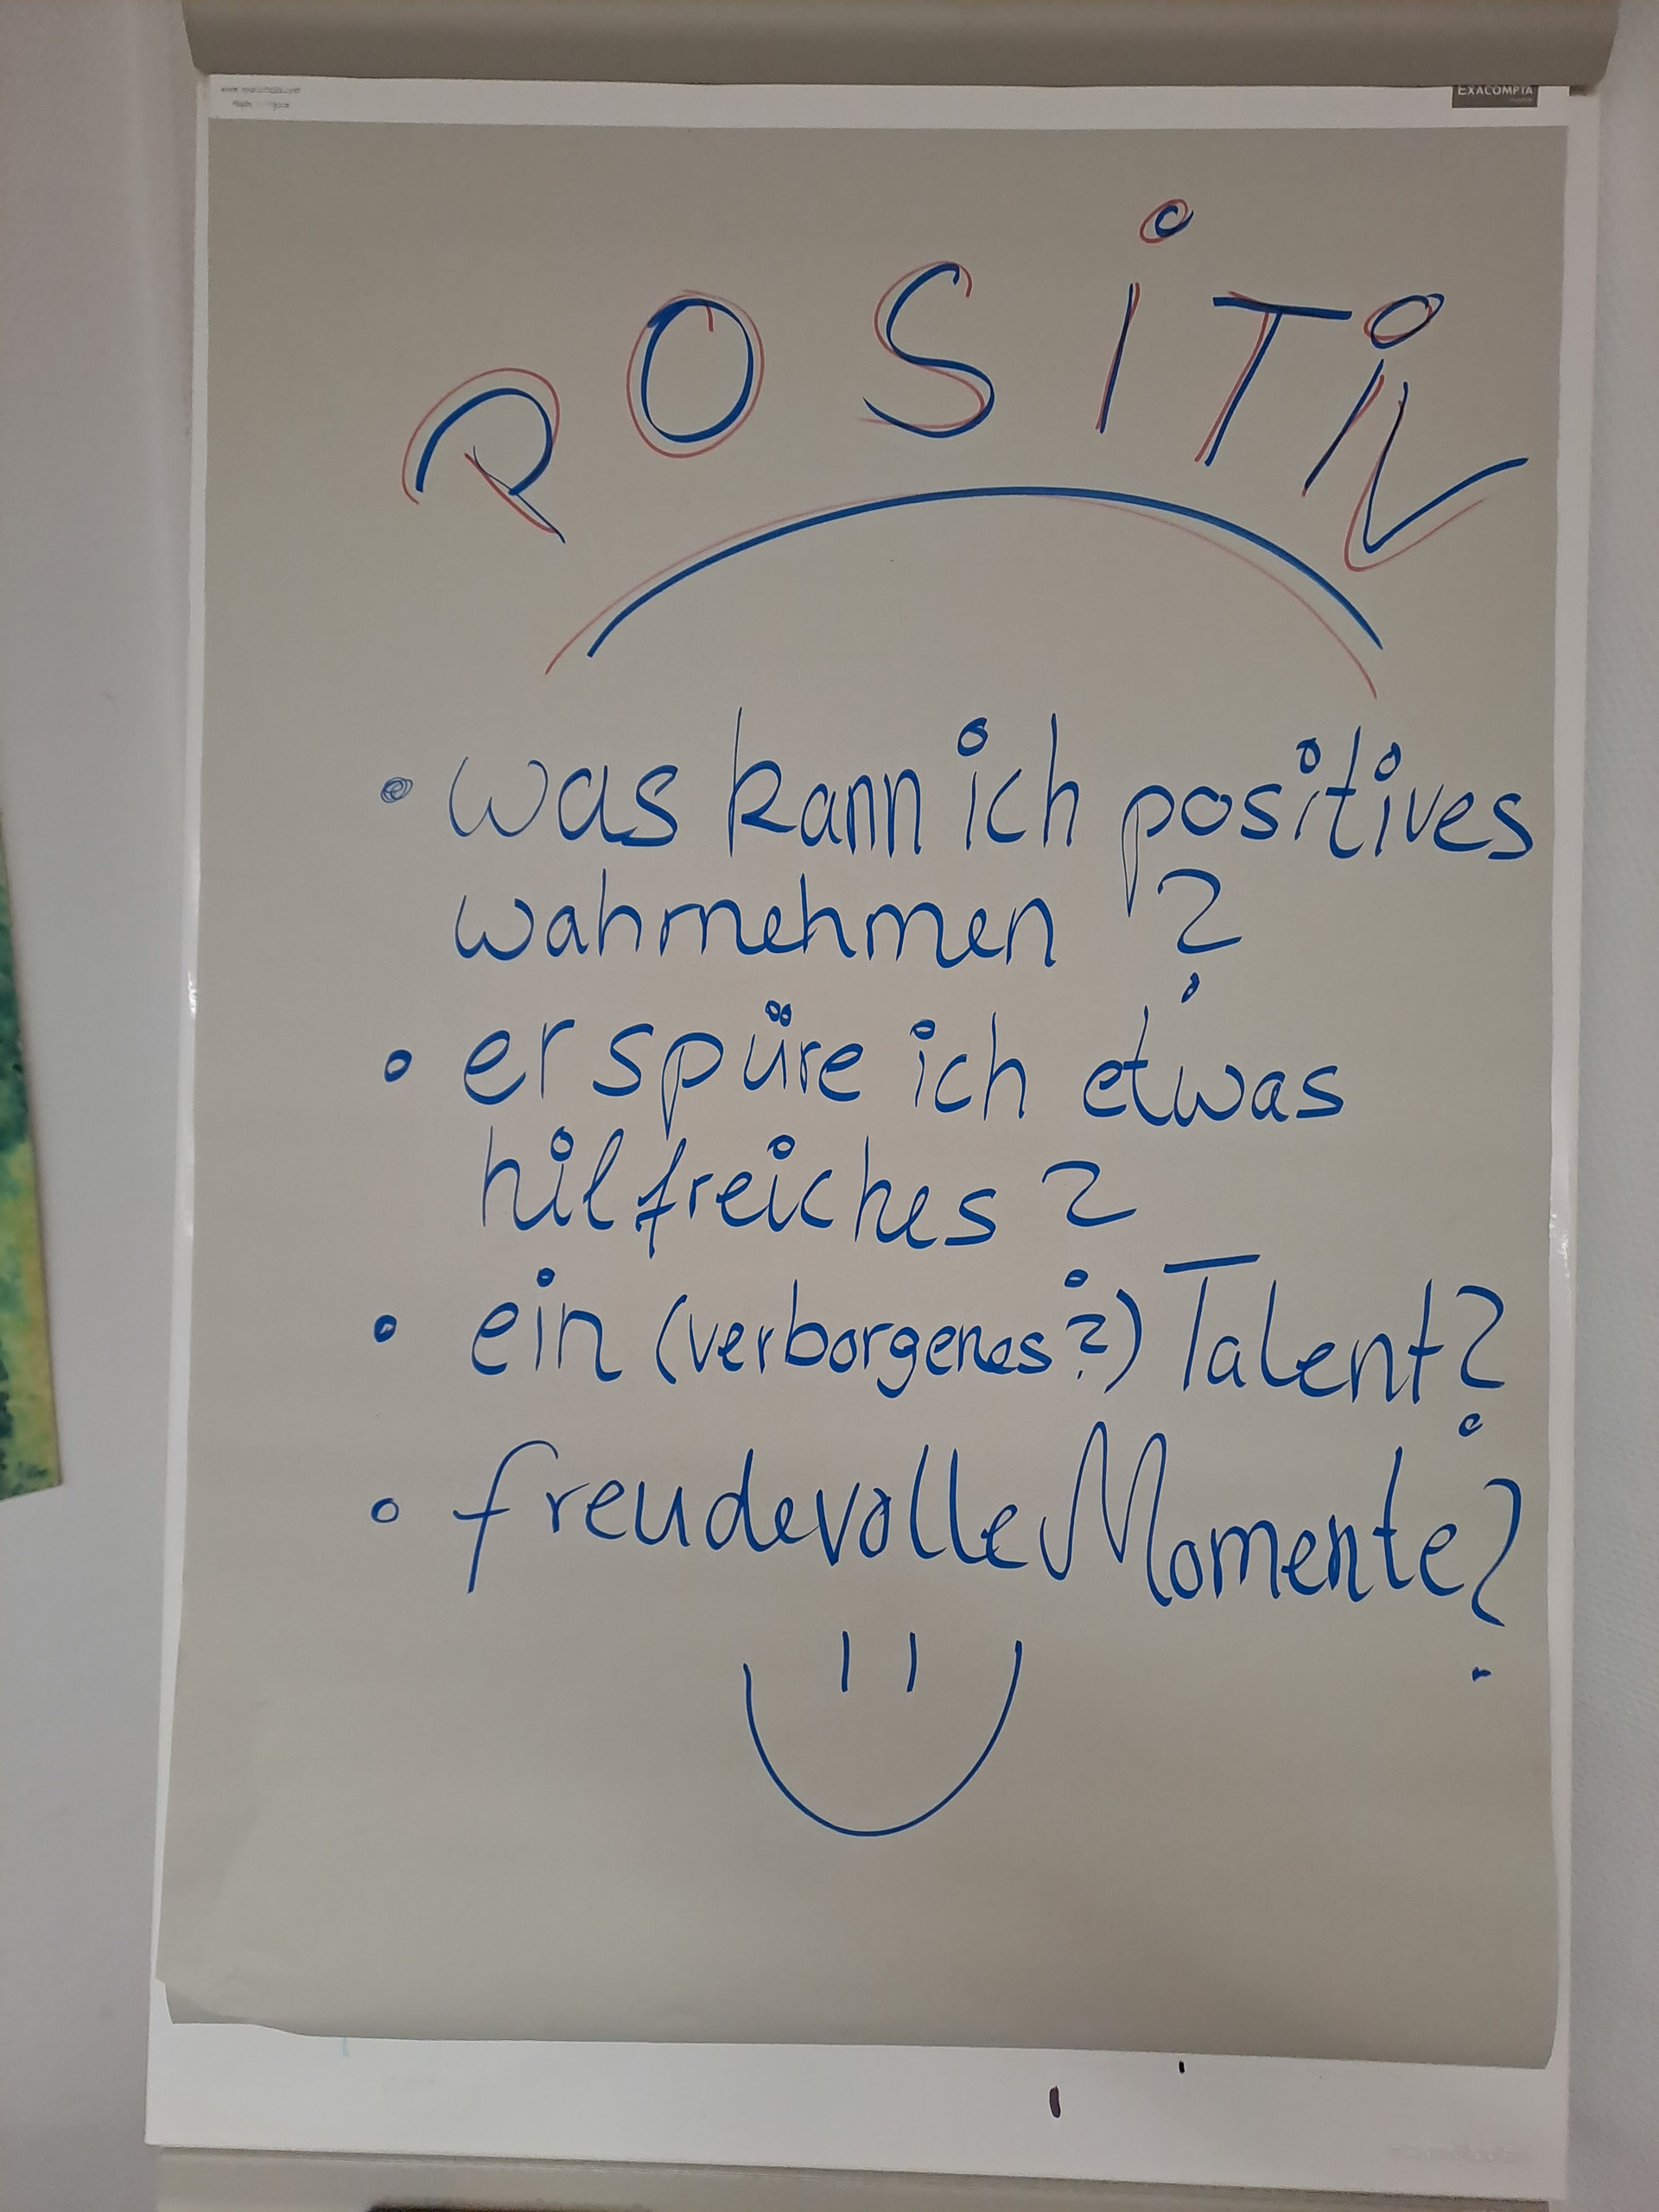 EXACOMPTA
POSiTiV
• was kann ich positives
wahrnehmen ?
• erspüre ich etwas
hilfreiches ?
• ein (verborgenes?) Talent?
• freudevolle Momente?